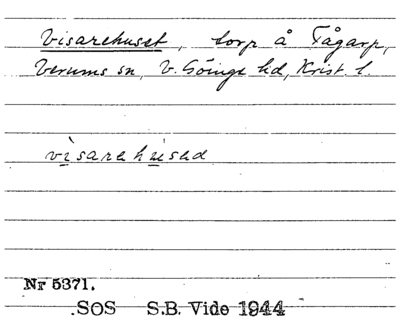 Visarehuset, torp å Tågarp,
Verums sn, V. Göinge hd, Krist. l.
visarehused
Nr 5371.
SOS S.B. Vide 1944